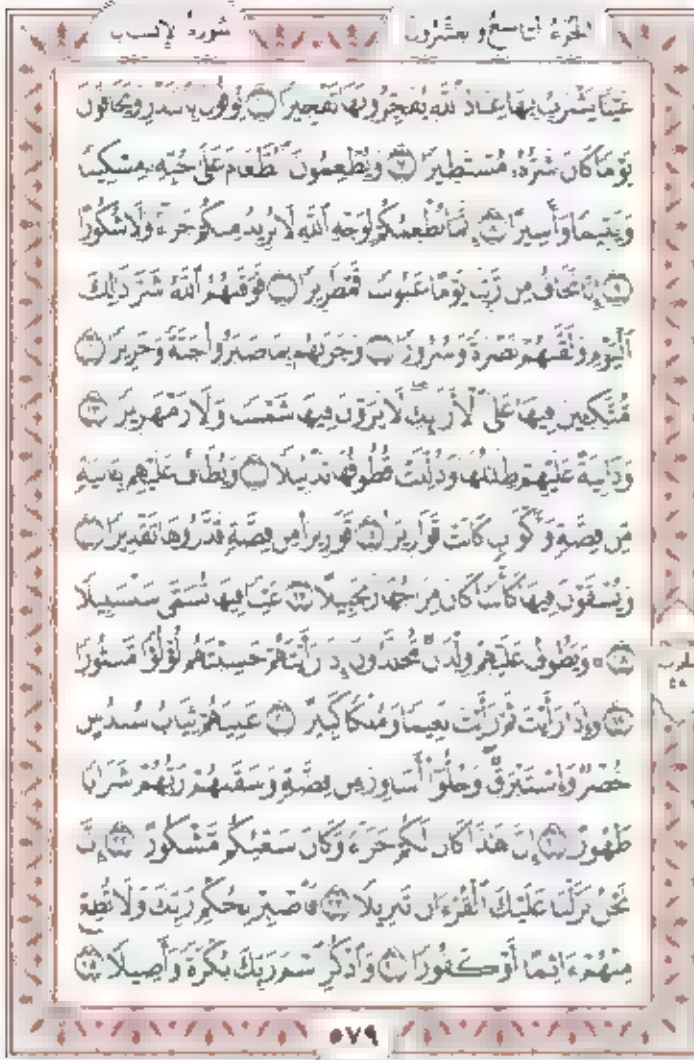 الجزء التاسع والعشرون
سورة الإنسان
عَيْنًا يَشْرَبُ بِهَا عِبَادُ ٱللَّهِ يُفَجِّرُونَهَا تَفْجِيرًا ۝٦ يُوفُونَ بِٱلنَّذْرِ وَيَخَافُونَ
يَوْمًا كَانَ شَرُّهُۥ مُسْتَطِيرًا ۝٧ وَيُطْعِمُونَ ٱلطَّعَامَ عَلَىٰ حُبِّهِۦ مِسْكِينًا
وَيَتِيمًا وَأَسِيرًا ۝٨ إِنَّمَا نُطْعِمُكُمْ لِوَجْهِ ٱللَّهِ لَا نُرِيدُ مِنكُمْ جَزَآءً وَلَا شُكُورًا
۝٩ إِنَّا نَخَافُ مِن رَّبِّنَا يَوْمًا عَبُوسًا قَمْطَرِيرًا ۝١٠ فَوَقَىٰهُمُ ٱللَّهُ شَرَّ ذَٰلِكَ
ٱلْيَوْمِ وَلَقَّىٰهُمْ نَضْرَةً وَسُرُورًا ۝١١ وَجَزَىٰهُم بِمَا صَبَرُوا۟ جَنَّةً وَحَرِيرًا ۝١٢
مُّتَّكِـِٔينَ فِيهَا عَلَى ٱلْأَرَآئِكِ ۖ لَا يَرَوْنَ فِيهَا شَمْسًا وَلَا زَمْهَرِيرًا ۝١٣
وَدَانِيَةً عَلَيْهِمْ ظِلَٰلُهَا وَذُلِّلَتْ قُطُوفُهَا تَذْلِيلًا ۝١٤ وَيُطَافُ عَلَيْهِم بِـَٔانِيَةٍ
مِّن فِضَّةٍ وَأَكْوَابٍ كَانَتْ قَوَارِيرَا۠ ۝١٥ قَوَارِيرَا۟ مِن فِضَّةٍ قَدَّرُوهَا تَقْدِيرًا ۝١٦
وَيُسْقَوْنَ فِيهَا كَأْسًا كَانَ مِزَاجُهَا زَنجَبِيلًا ۝١٧ عَيْنًا فِيهَا تُسَمَّىٰ سَلْسَبِيلًا
۝١٨ ۞ وَيَطُوفُ عَلَيْهِمْ وِلْدَٰنٌ مُّخَلَّدُونَ إِذَا رَأَيْتَهُمْ حَسِبْتَهُمْ لُؤْلُؤًا مَّنثُورًا
۝١٩ وَإِذَا رَأَيْتَ ثَمَّ رَأَيْتَ نَعِيمًا وَمُلْكًا كَبِيرًا ۝٢٠ عَٰلِيَهُمْ ثِيَابُ سُندُسٍ
خُضْرٌ وَإِسْتَبْرَقٌ ۖ وَحُلُّوٓا۟ أَسَاوِرَ مِن فِضَّةٍ وَسَقَىٰهُمْ رَبُّهُمْ شَرَابًا
طَهُورًا ۝٢١ إِنَّ هَٰذَا كَانَ لَكُمْ جَزَآءً وَكَانَ سَعْيُكُم مَّشْكُورًا ۝٢٢ إِنَّا
نَحْنُ نَزَّلْنَا عَلَيْكَ ٱلْقُرْءَانَ تَنزِيلًا ۝٢٣ فَٱصْبِرْ لِحُكْمِ رَبِّكَ وَلَا تُطِعْ
مِنْهُمْ ءَاثِمًا أَوْ كَفُورًا ۝٢٤ وَٱذْكُرِ ٱسْمَ رَبِّكَ بُكْرَةً وَأَصِيلًا ۝٢٥
٥٧٩